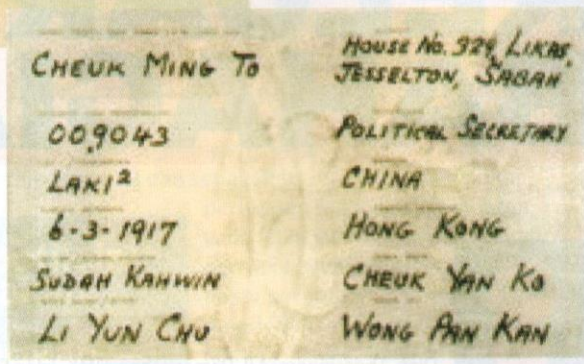 CHEUK MING TO
009043
LAKI²
6-3-1917
SUDAH KAHWIN
LI YUN CHU
HOUSE No. 329, LIKAS,
JESSELTON, SABAH
POLITICAL SECRETARY
CHINA
HONG KONG
CHEUK YAN KO
WONG PAN KAN